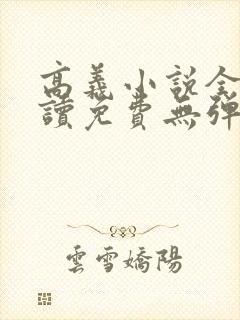 高義小說全
讀免費無彈
雲雪嬌陽